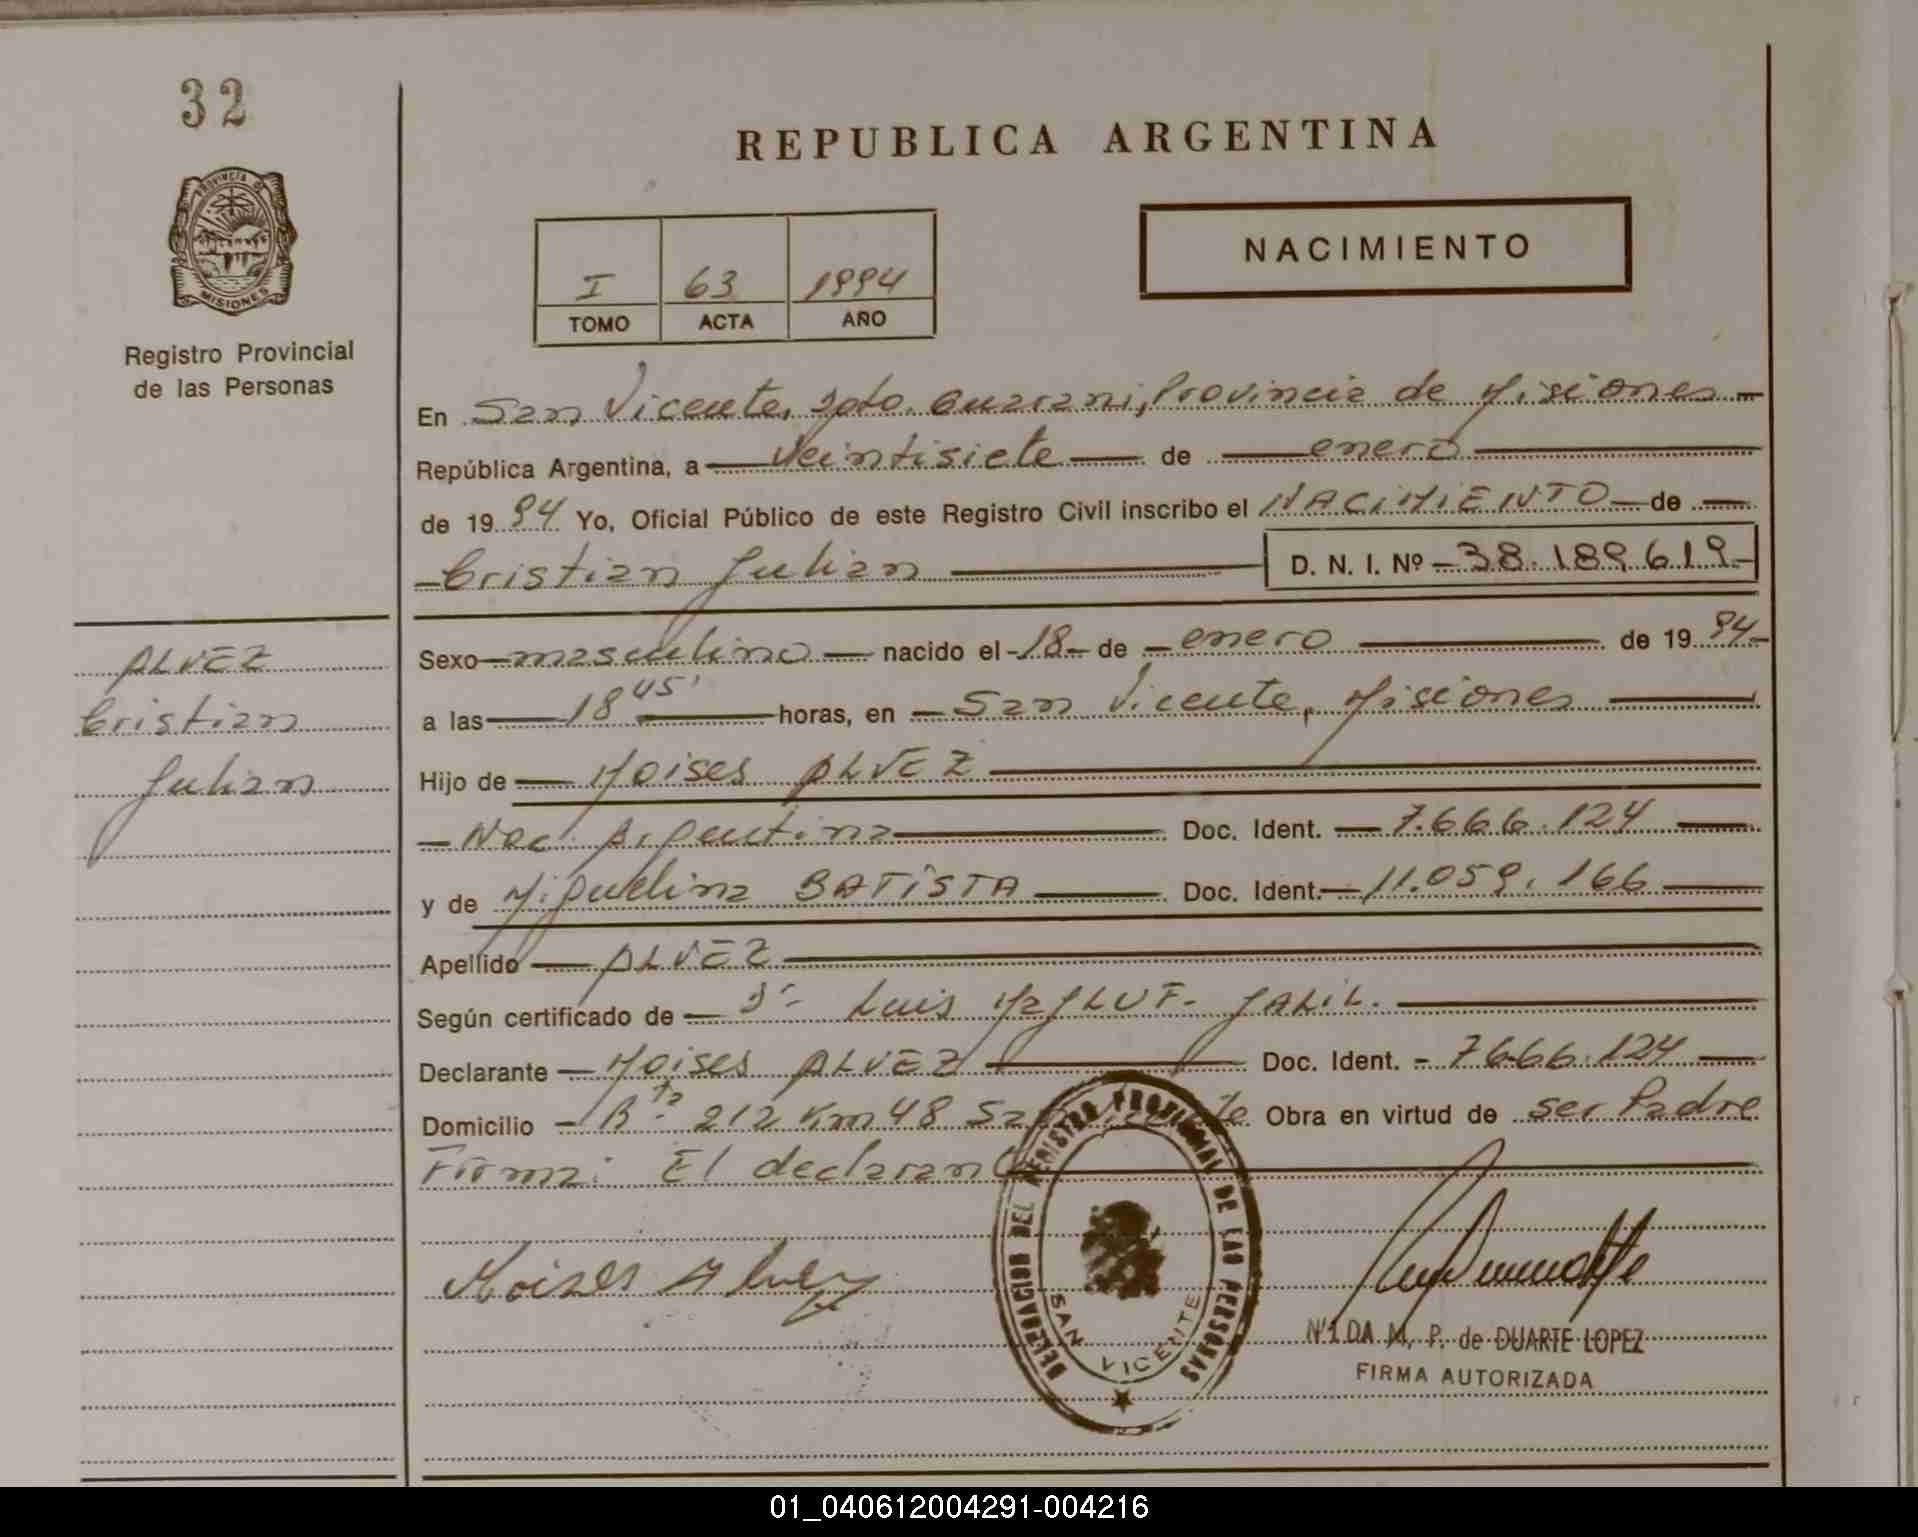 32
PROVINCIA DE
MISIONES
Registro Provincial
de las Personas
ALVEZ
Cristian
Julian
REPUBLICA ARGENTINA
I 63 1994
TOMO ACTA AÑO
NACIMIENTO
En San Vicente, Dpto. Guarani, Provincia de Misiones
República Argentina, a veintisiete de enero
de 1994 Yo, Oficial Público de este Registro Civil inscribo el NACIMIENTO de
Cristian Julian D. N. I. Nº 38.189.619-
Sexo masculino nacido el 18 de enero de 1994
a las 18 45' horas, en San Vicente, Misiones
Hijo de Moises ALVEZ
Nac. Argentina Doc. Ident. 7.666.124
y de Miguelina BATISTA Doc. Ident. 11.059.166
Apellido ALVEZ
Según certificado de Dr. Luis JALIL.
Declarante Moises ALVEZ Doc. Ident. 7.666.124
Domicilio Rta. 212 Km 48 San Vicente Obra en virtud de ser Padre
Firma: El declarante
Moises Alvez
DELEGACION DEL REGISTRO PROVINCIAL DE LAS PERSONAS
SAN VICENTE
DA M. P. de DUARTE LOPEZ
FIRMA AUTORIZADA
01_040612004291-004216